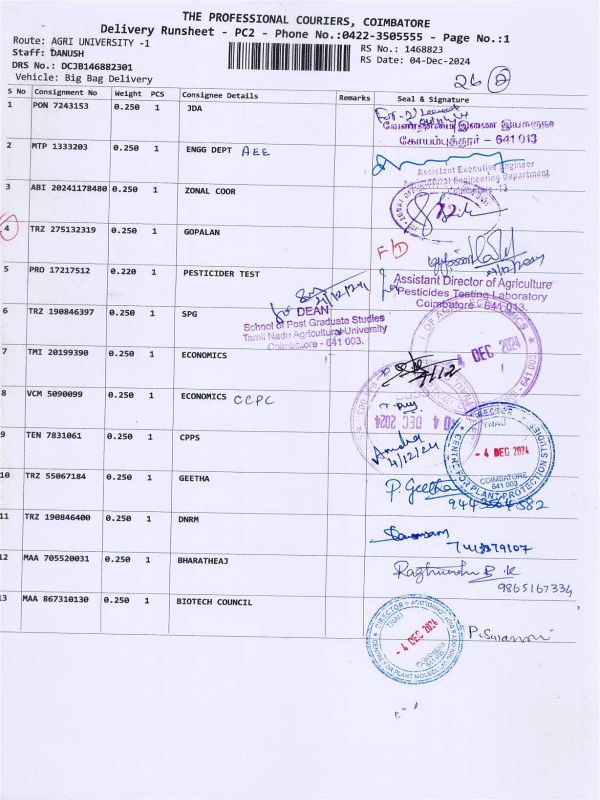 THE PROFESSIONAL COURIERS, COIMBATORE
Delivery Runsheet - PC2 - Phone No.:0422-3505555 - Page No.:1
Route: AGRI UNIVERSITY -1
RS No.: 1468823
Staff: DANUSH
RS Date: 04-Dec-2024
DRS No.: DCJB146882301
Vehicle: Big Bag Delivery
26 2
S No Consignment No Weight PCS Consignee Details Remarks Seal & Signature
1 PON 7243153 0.250 1 JDA
வேளாண்மை இணை இயக்குநர்
கோயம்புத்தூர் – 641 013
2 MTP 1333203 0.250 1 ENGG DEPT AEE
Assistant Executive Engineer
Agricultural Engineering Department
Coimbatore-13
3 ABI 20241178480 0.250 1 ZONAL COOR
4 TRZ 275132319 0.250 1 GOPALAN
F/D
5 PRO 17217512 0.220 1 PESTICIDER TEST
Assistant Director of Agriculture
Pesticides Testing Laboratory
Coimbatore - 641 013.
6 TRZ 190846397 0.250 1 SPG
DEAN
School of Post Graduate Studies
Tamil Nadu Agricultural University
Coimbatore - 641 003.
7 TMI 20199390 0.250 1 ECONOMICS
4 DEC 2024
8 VCM 5090099 0.250 1 ECONOMICS CCPC
04 DEC 2024
9 TEN 7831061 0.250 1 CPPS
4/12/24
DIRECTOR
TNAU
- 4 DEC 2024
COIMBATORE
641 003
CENTRE FOR PLANT PROTECTION STUDIES
10 TRZ 55067184 0.250 1 GEETHA
P. Geetha
11 TRZ 190846400 0.250 1 DNRM
12 MAA 705520031 0.250 1 BHARATHEAJ
9865167334
13 MAA 867310130 0.250 1 BIOTECH COUNCIL
DIRECTOR
TNAU
- 4 DEC 2024